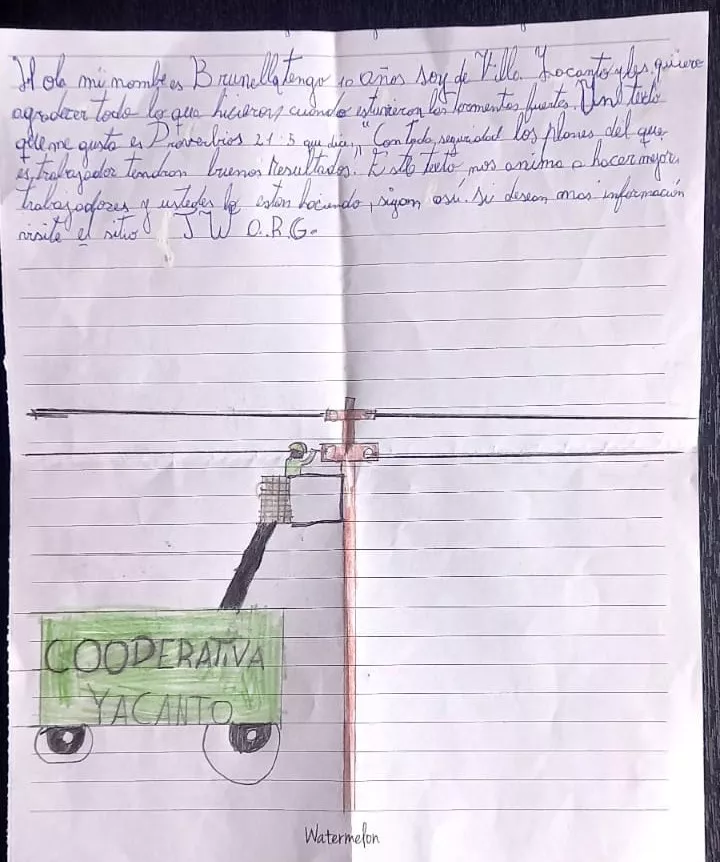 Hola mi nombe es Brunella tengo 10 años soy de Villa Yacanto y les quiero
agradecer todo lo que hicieron cuando estuvieron las tormentas fuertes. Un texto
que me gusta es Proverbios 21:5 que dice, "Con toda seguridad los planes del que
es trabajador tendran buenos resultados. Este texto nos anima a hacer mejor
trabajadores y ustedes lo estan haciendo, sigan así. si desean mas información
visite el sitio JW O.R.G.
COOPERATIVA
YACANTO
Watermelon